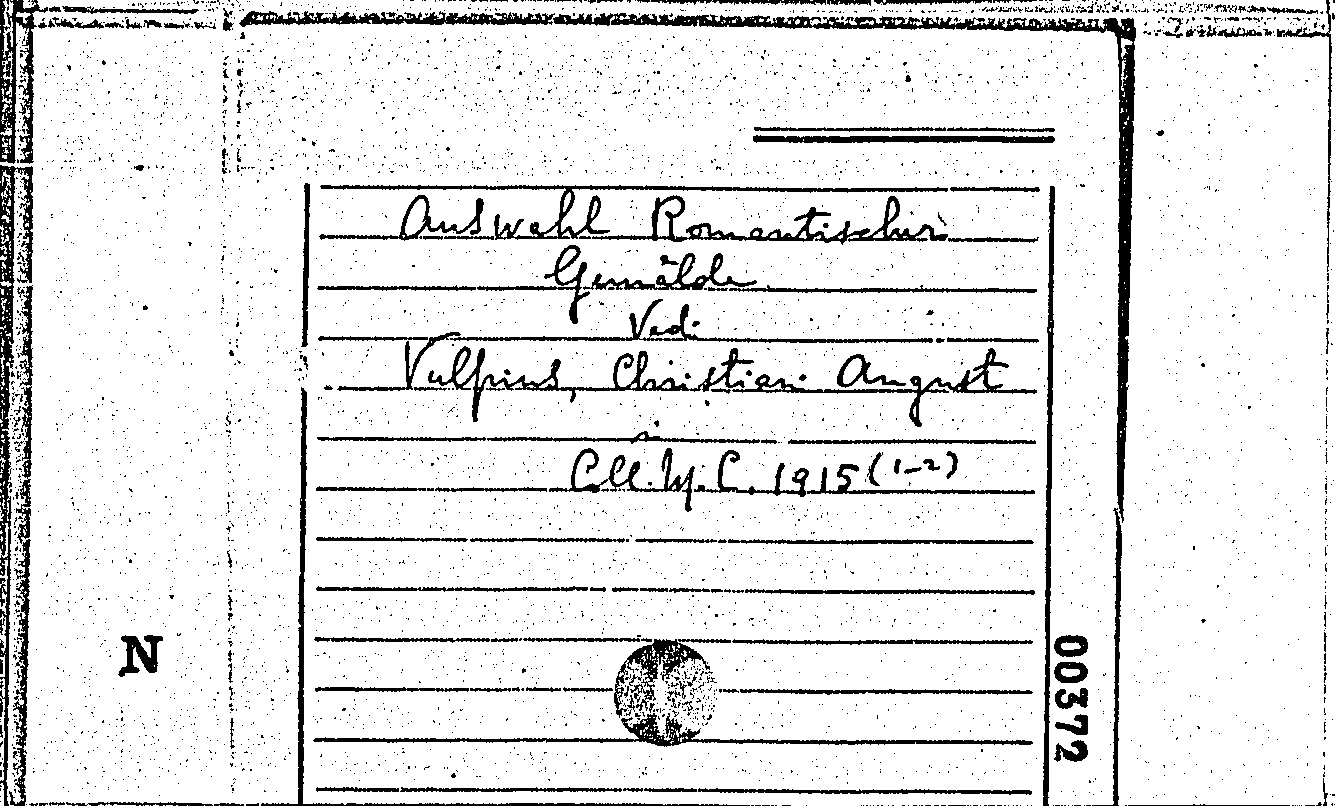 Auswahl Romantischer
Gemälde
Vedi
Vulpius, Christian August
in
Coll. M. C. 1915 (1-2)
N
00372